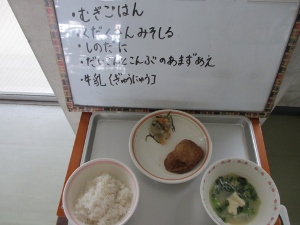 ・むぎごはん
・ぐだくさんみそしる
・しのだに
・だいこんとこんぶのあまずあえ
・牛乳(ぎゅうにゅう)